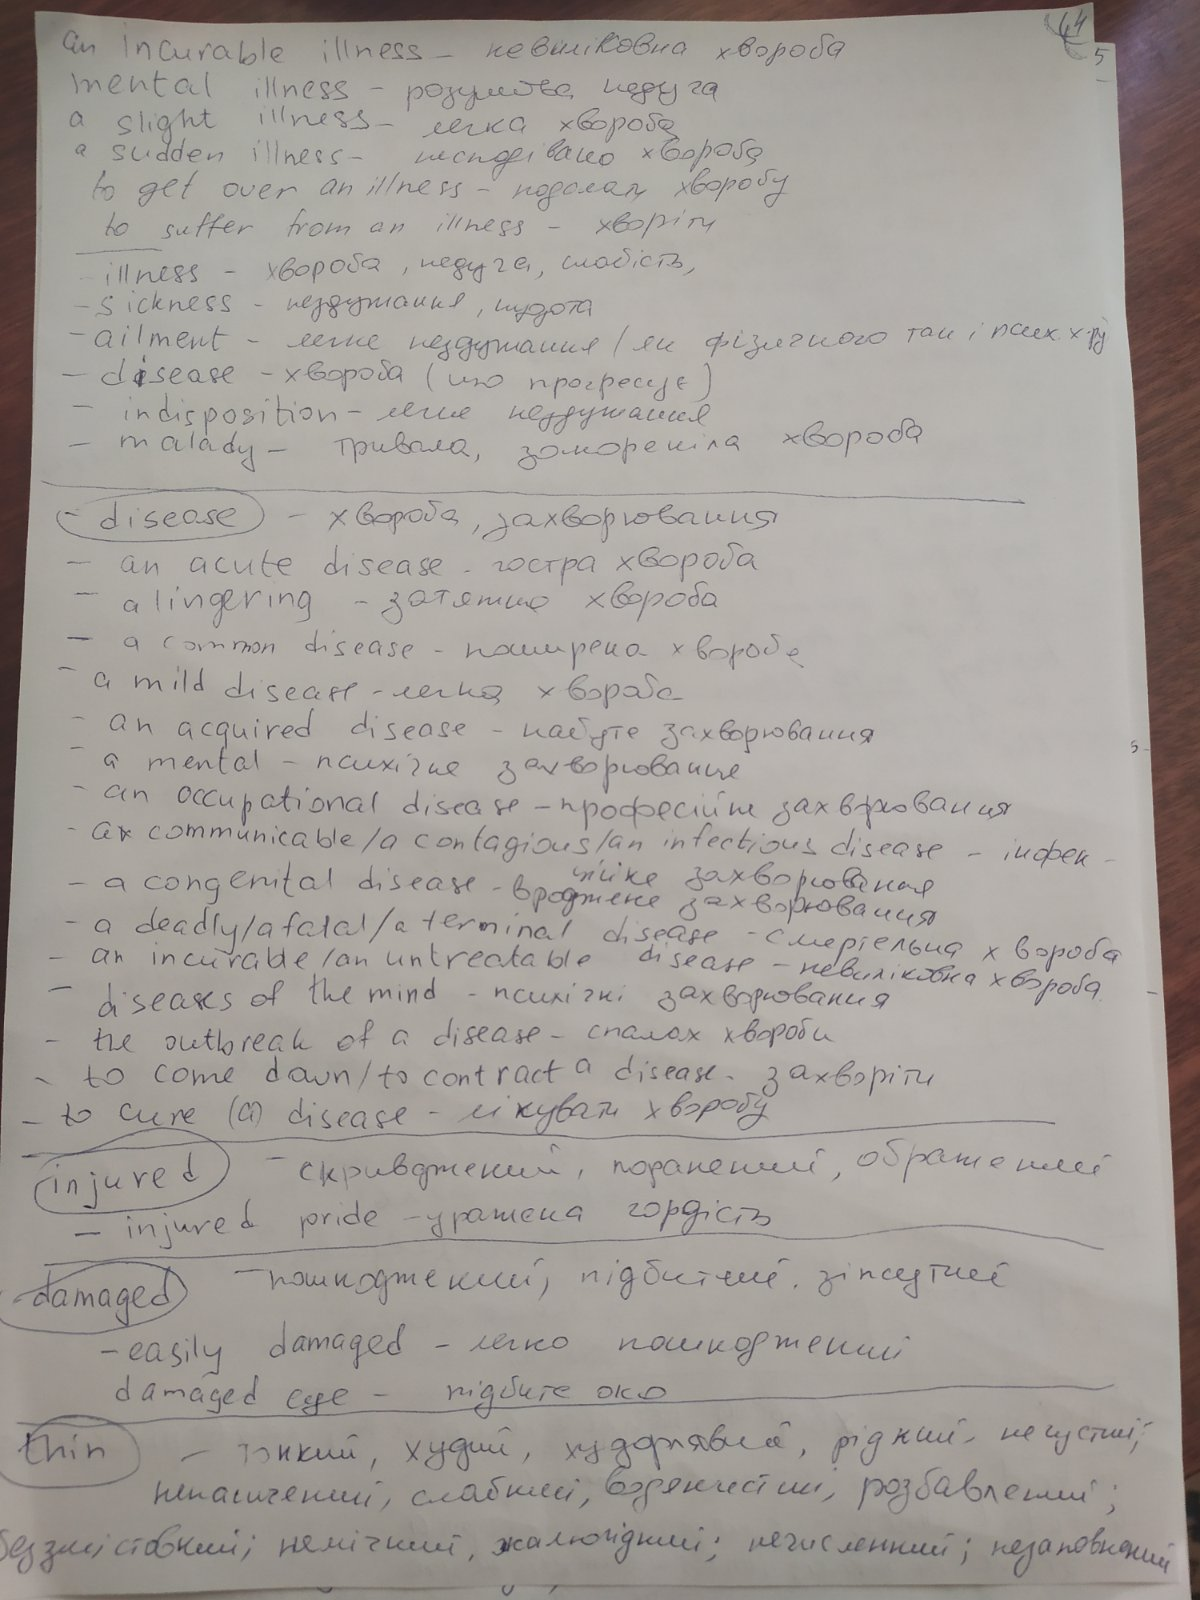 44
5
an Incurable illness - невиліковна хвороба
mental illness - розумова недуга
a slight illness - легка хвороба
a sudden illness - несподівано хвороба
to get over an illness - подолати хворобу
to suffer from an illness - хворіти
- illness - хвороба, недуга, слабість,
- sickness - нездужання, нудота
- ailment - легке нездужання / як фізичного так і псих. х-ру
- disease - хвороба (що прогресує)
- indisposition - легке нездужання
- malady - тривала, закореніла хвороба
- disease - хвороба, захворювання
- an acute disease - гостра хвороба
- a lingering - затяжна хвороба
- a common disease - поширена хвороба
- a mild disease - легка хвороба
- an acquired disease - набуте захворювання
- a mental - психічне захворювання
- an occupational disease - професійне захворювання
- a communicable/a contagious/an infectious disease - інфек-
ційне захворювання
- a congenital disease - вроджене захворювання
- a deadly/a fatal/a terminal disease - смертельна хвороба
- an incurable/an untreatable disease - невиліковна хвороба.
- diseases of the mind - психічні захворювання
- the outbreak of a disease - спалах хвороби
- to come down/to contract a disease - захворіти
- to cure (a) disease - лікувати хворобу
injured - скривджений, поранений, ображений
- injured pride - уражена гордість
- damaged - пошкоджений, підбитий, зіпсутий
- easily damaged - легко пошкоджений
damaged eye - підбите око
thin - тонкий, худий, худорлявий, рідкий, негустий;
ненасичений, слабкий, водянистий, розбавлений;
беззмістовний; немічний, жалюгідний; нечисленний; незаповнений